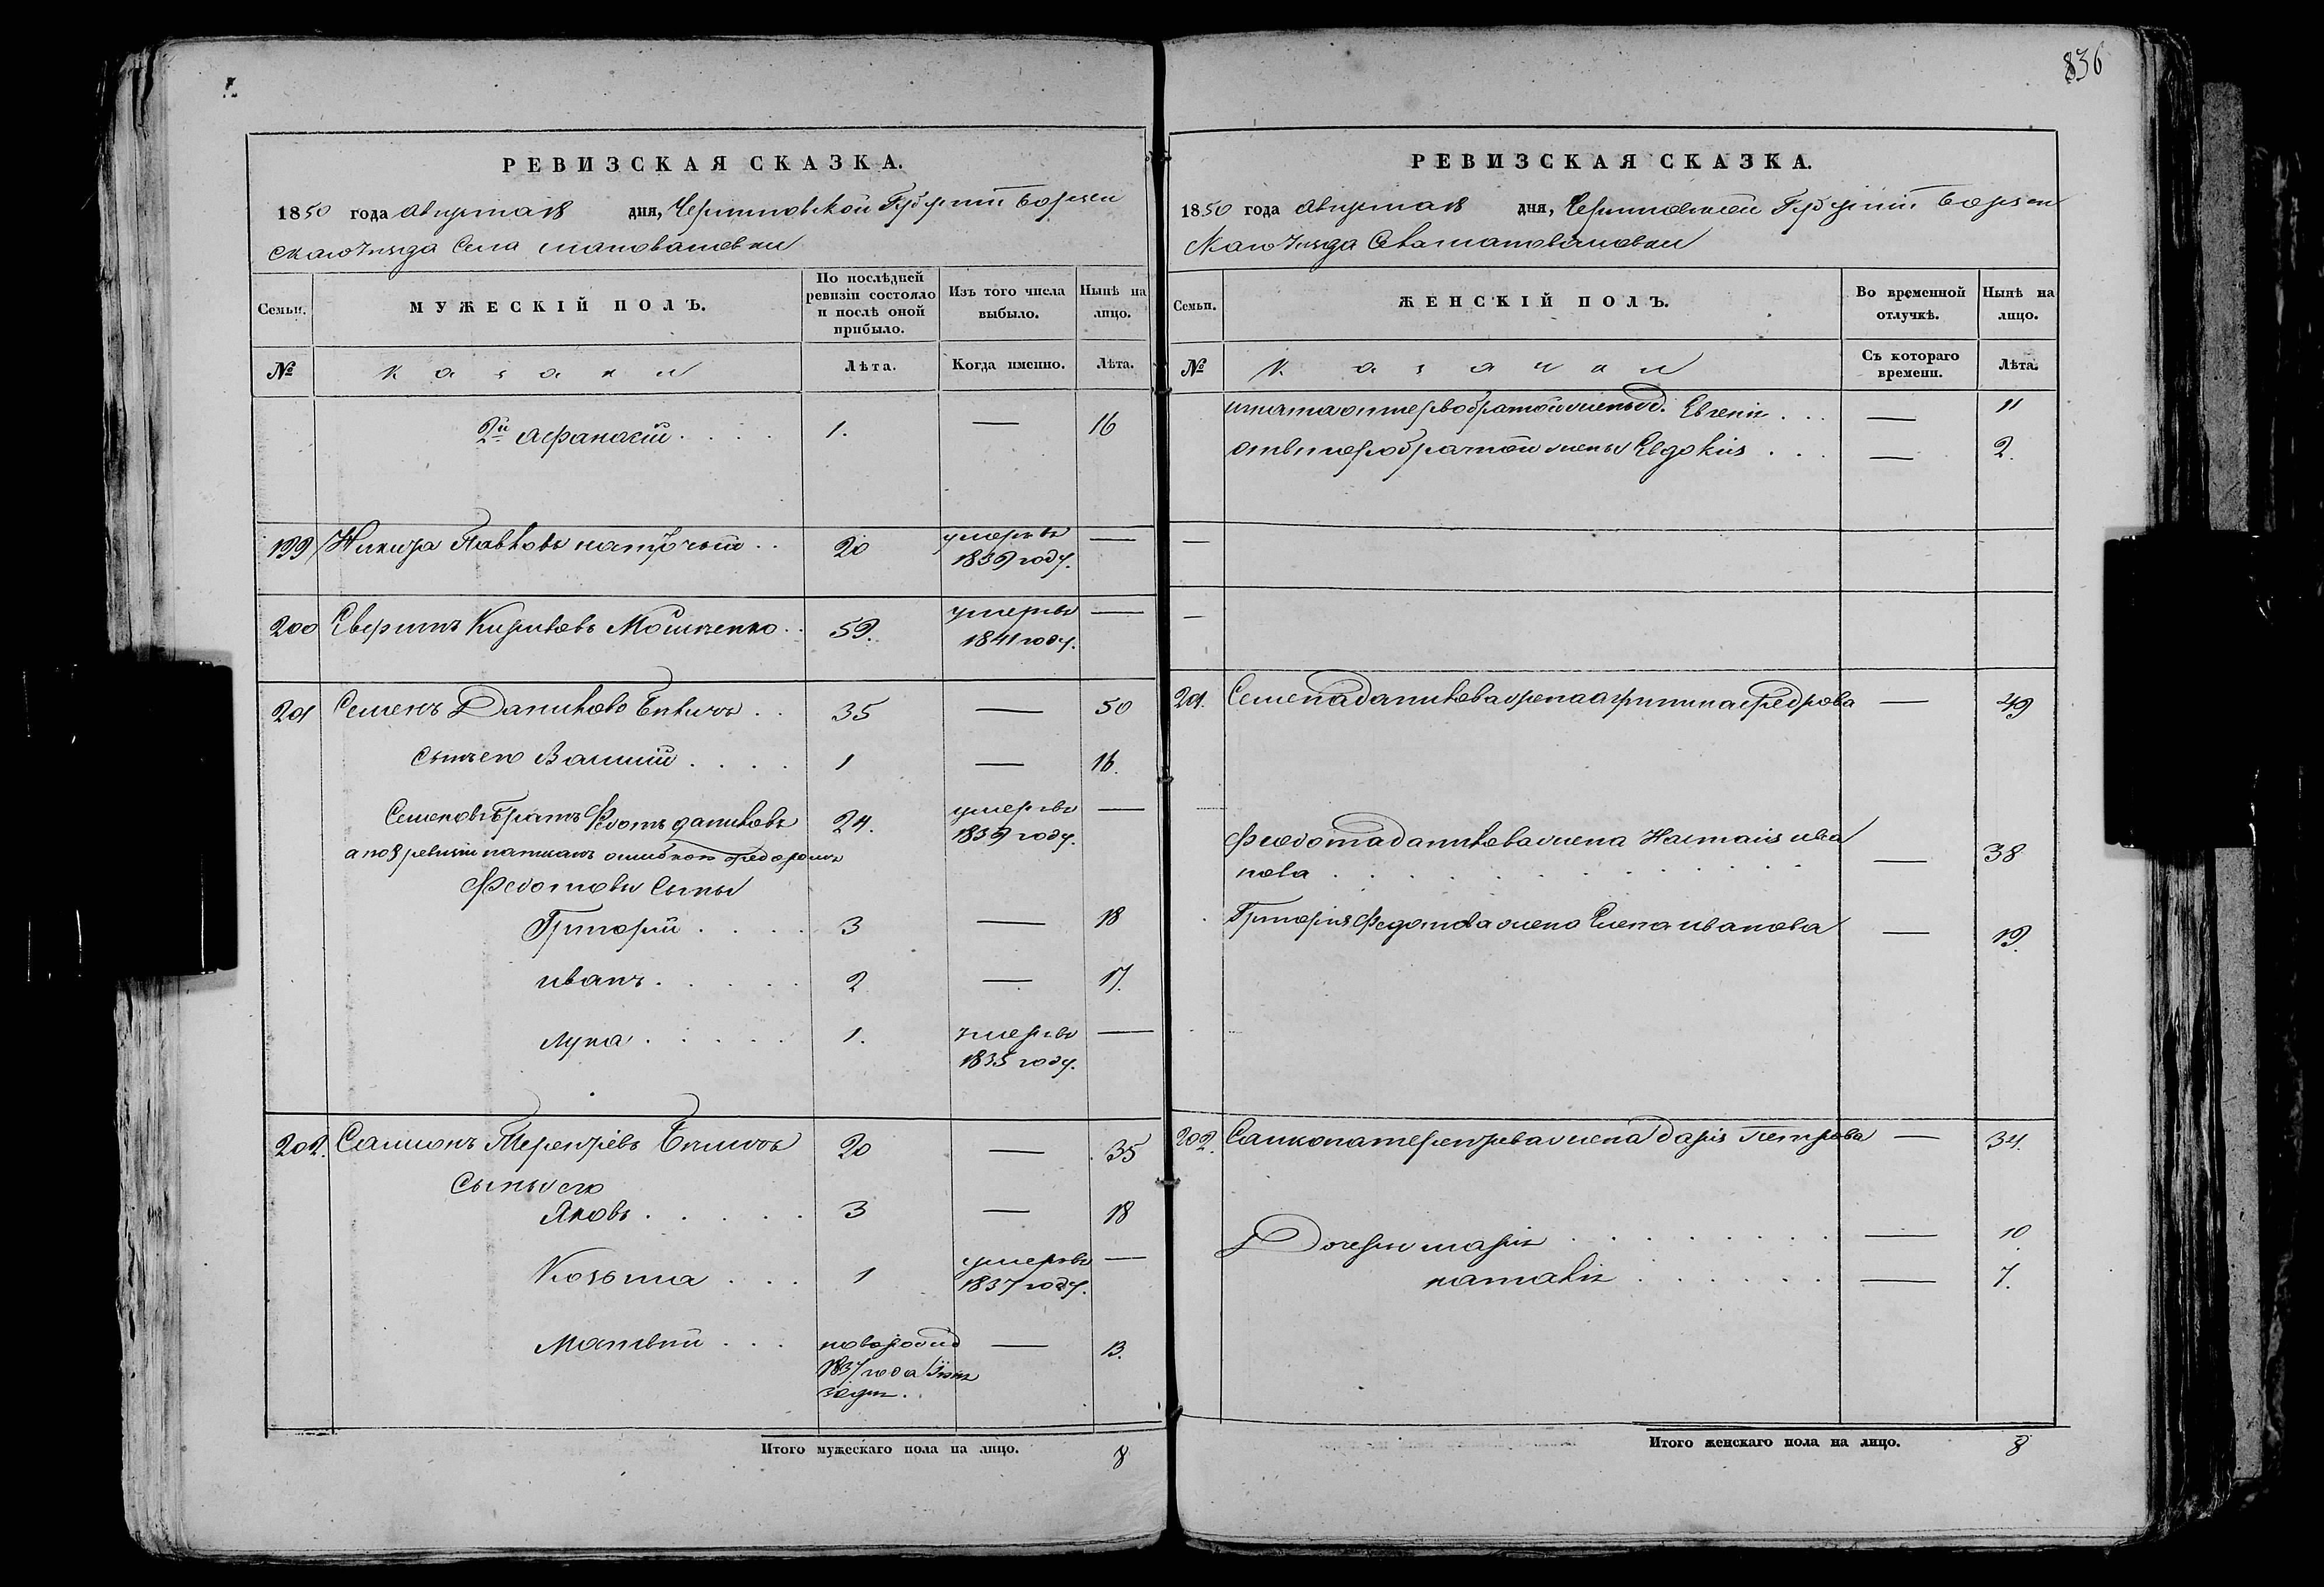 836
РЕВИЗСКАЯ СКАЗКА.
1850 года августа 18 дня, Черниговской Губернии Борзен
скаго Уезда Села
Семьи.
МУЖЕСКІЙ ПОЛЪ.
По послѣдней ревизіи состояло и послѣ оной прибыло.
Изъ того числа выбыло.
Нынѣ на лицо.
№
Казаки
Лѣта.
Когда именно.
Лѣта.
2й Афанасій . . . . 1. — 16
199 Никита Павловъ . . 20 умеръ въ 1839 году. —
200 Кириловъ Мошченко . . 59. умеръ въ 1841 году. —
201 Семенъ Даниловъ . . 35 — 50
Сынъ его Василий . . . . 1 — 16.
Семеновъ братъ Федотъ Даниловъ 24. умеръ въ 1839 году. —
а по 8 ревизии написанъ ошибкою Федоромъ
Федотовы Сыны
Григорий . . . . 3 — 18
Иванъ . . . . . 2 — 17.
Лука . . . . . 1. умеръ въ 1835 году. —
202. Самсонъ Терентьевъ 20 — 35
Сыны его
Яковъ . . . . . 3 — 18
Козьма . . . 1 умеръ въ 1837 году. —
Матвѣй . . . новорожд — 13.
1837 года
Итого мужескаго пола на лицо. 8
РЕВИЗСКАЯ СКАЗКА.
1850 года августа 18 дня, Черниговской Губернии Борзен
скаго Уезда Села
Семьи.
ЖЕНСКІЙ ПОЛЪ.
Во временной отлучкѣ.
Нынѣ на лицо.
№
Казачки
Съ котораго времени.
Лѣта.
отъ первобрачной жены д. Евгения . . . — 11
отъ второбрачной жены Евдокия . . . — 2.
—
—
201. Семена Данилова жена Агрипина Федрова — 49
Феодота Данилова жена Настасия Ива
нова . . . . . . . . . . — 38
Григория Федотова жена Елена Иванова — 19.
202. Самсона Терентьева жена Дария Петрова — 34.
Дочери Мария . . . . . . . . — 10
Наталия . . . . . . — 7.
Итого женскаго пола на лицо. 8